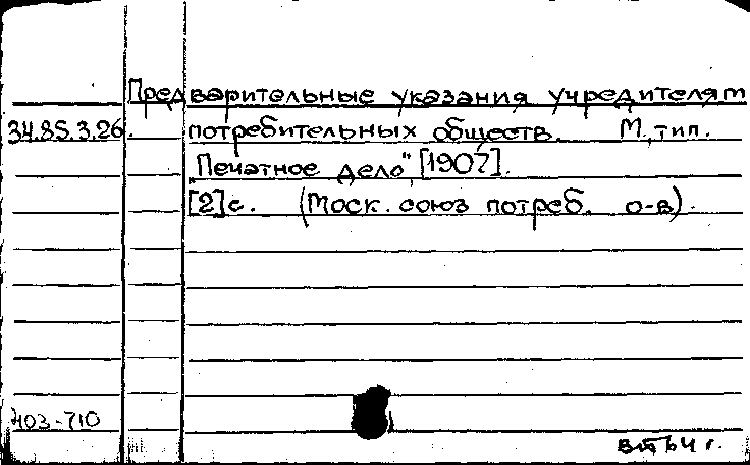 Предварительные указания учредителям
34.85.3.26. потребительных обществ. М., тип.
„Печатное дело", [190?].
[2] с. (Моск. союз потреб. о-в).
403-710